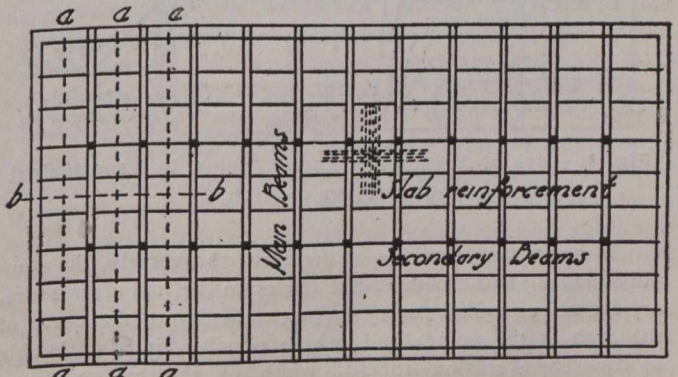 a a a
b b
Main Beams
Slab reinforcement
Secondary Beams
a a a